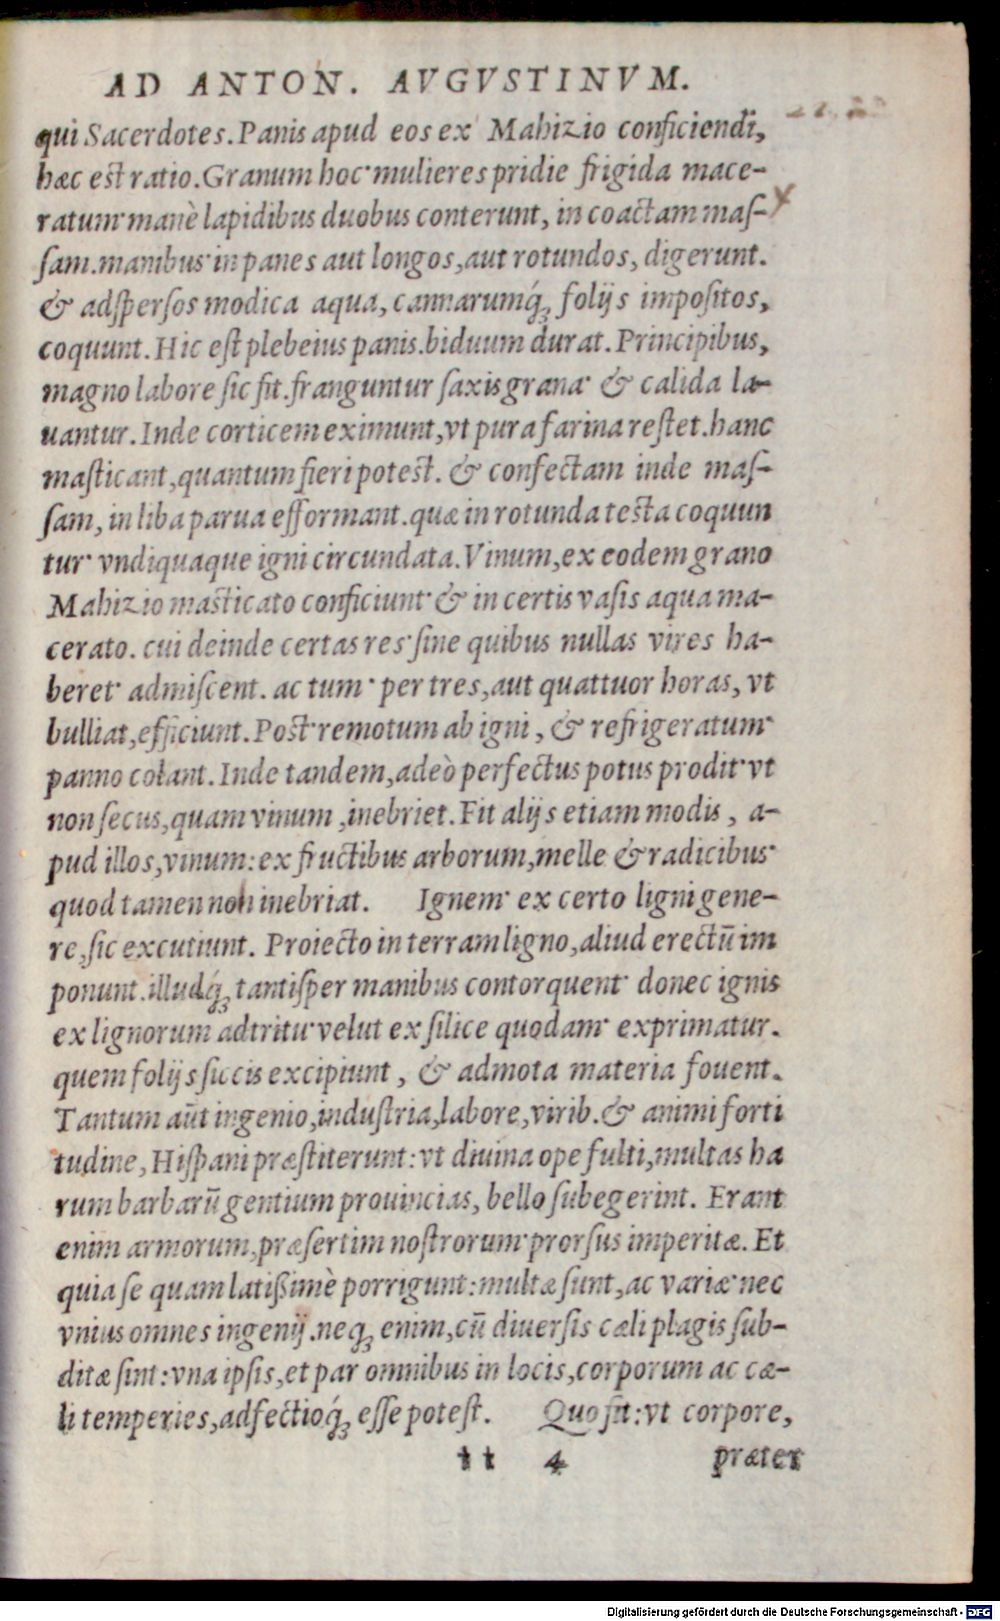 AD ANTON. AVGVSTINVM.
qui Sacerdotes. Panis apud eos ex Mahizio conficiendi,
hæc est ratio. Granum hoc mulieres pridie frigida mace-
ratum manè lapidibus duobus conterunt, in coactam maſ-
ſam. manibus in panes aut longos, aut rotundos, digerunt.
& adſperſos modica aqua, cannarumq́ꝫ folijs impoſitos,
coquunt. Hic eſt plebeius panis. biduum durat. Principibus,
magno labore ſic fit. franguntur ſaxis grana & calida la-
uantur. Inde corticem eximunt, vt pura farina reſtet. hanc
maſticant, quantum fieri potest. & confectam inde maſ-
ſam, in liba parua efformant. quæ in rotunda testa coquun
tur vndiquaque igni circundata. Vinum, ex eodem grano
Mahizio masticato conficiunt & in certis vaſis aqua ma-
cerato. cui deinde certas res ſine quibus nullas vires ha-
beret admiſcent. ac tum per tres, aut quattuor horas, vt
bulliat, efficiunt. Post remotum ab igni, & refrigeratum
panno colant. Inde tandem, adeò perfectus potus prodit vt
non ſecus, quam vinum, inebriet. Fit alijs etiam modis, a-
pud illos, vinum: ex fructibus arborum, melle & radicibus
quod tamen non inebriat. Ignem ex certo ligni gene-
re, ſic excutiunt. Proiecto in terram ligno, aliud erectū im
ponunt. illudq́ꝫ tantiſper manibus contorquent donec ignis
ex lignorum adtritu velut ex ſilice quodam exprimatur.
quem folijs ſiccis excipiunt, & admota materia fouent.
Tantum aūt ingenio, induſtria, labore, virib. & animi forti
tudine, Hiſpani præſtiterunt: vt diuina ope fulti, multas ha
rum barbarū gentium prouincias, bello ſubegerint. Erant
enim armorum, præſertim noſtrorum prorſus imperitæ. Et
quia ſe quam latißimè porrigunt: multæ ſunt, ac variæ nec
vnius omnes ingenij. neqꝫ enim, cū diuerſis cæli plagis ſub-
ditæ ſint: vna ipſis, et par omnibus in locis, corporum ac cæ-
li temperies, adfectioq́ꝫ eſſe poteſt. Quo fit: vt corpore,
tt 4 præter
Digitalisierung gefördert durch die Deutsche Forschungsgemeinschaft - DFG